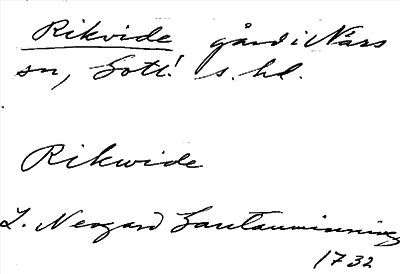 Rikvide gård i Närs
sn, Gotl. s. hd.
Rikwide
L. Neogard Gautauminning
1732